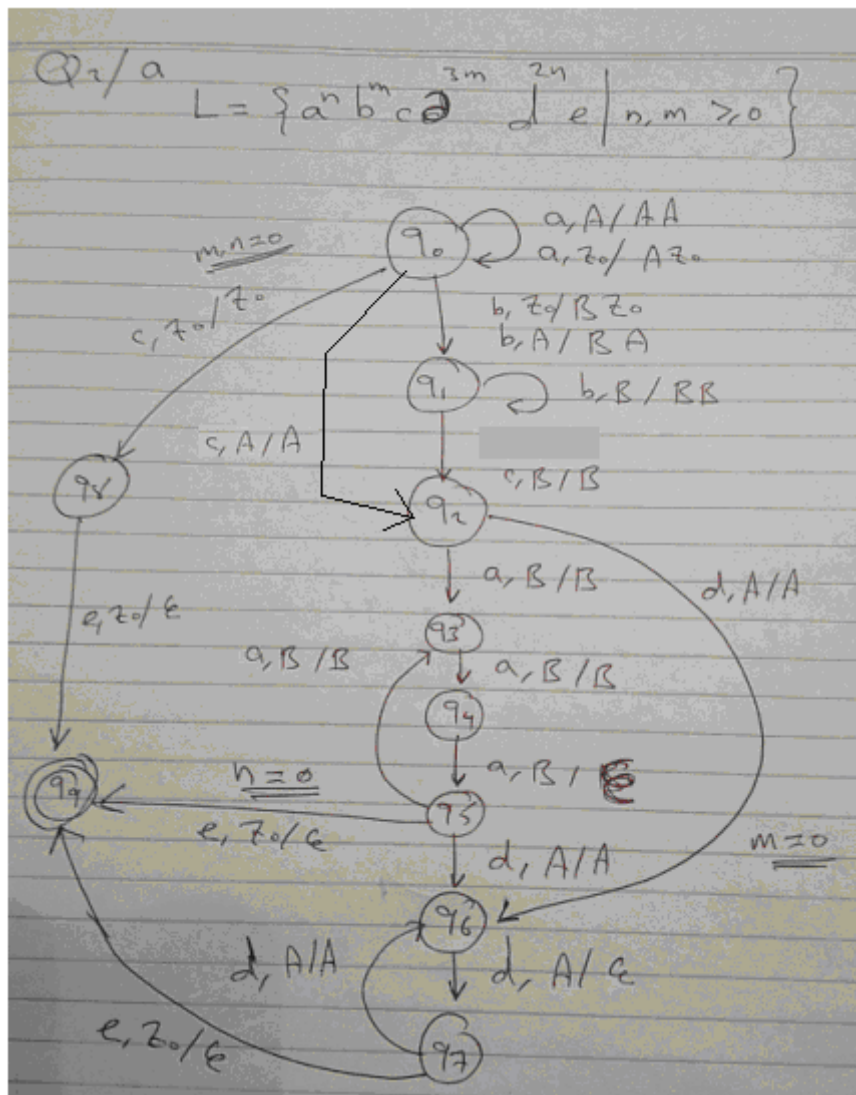 Q2/a
L = { aⁿ bᵐ c a³ᵐ d²ⁿ e | n, m ≥ 0 }
q0
a, A / AA
a, Z0 / AZ0
m, n = 0
c, Z0 / Z0
b, Z0 / BZ0
b, A / BA
q1
b, B / BB
c, A / A
c, B / B
q8
q2
a, B / B
d, A / A
e, Z0 / ε
q3
a, B / B
a, B / B
q4
a, B / ε
n = 0
q9
q5
e, Z0 / ε
m = 0
d, A / A
q6
d, A / A
d, A / ε
e, Z0 / ε
q7